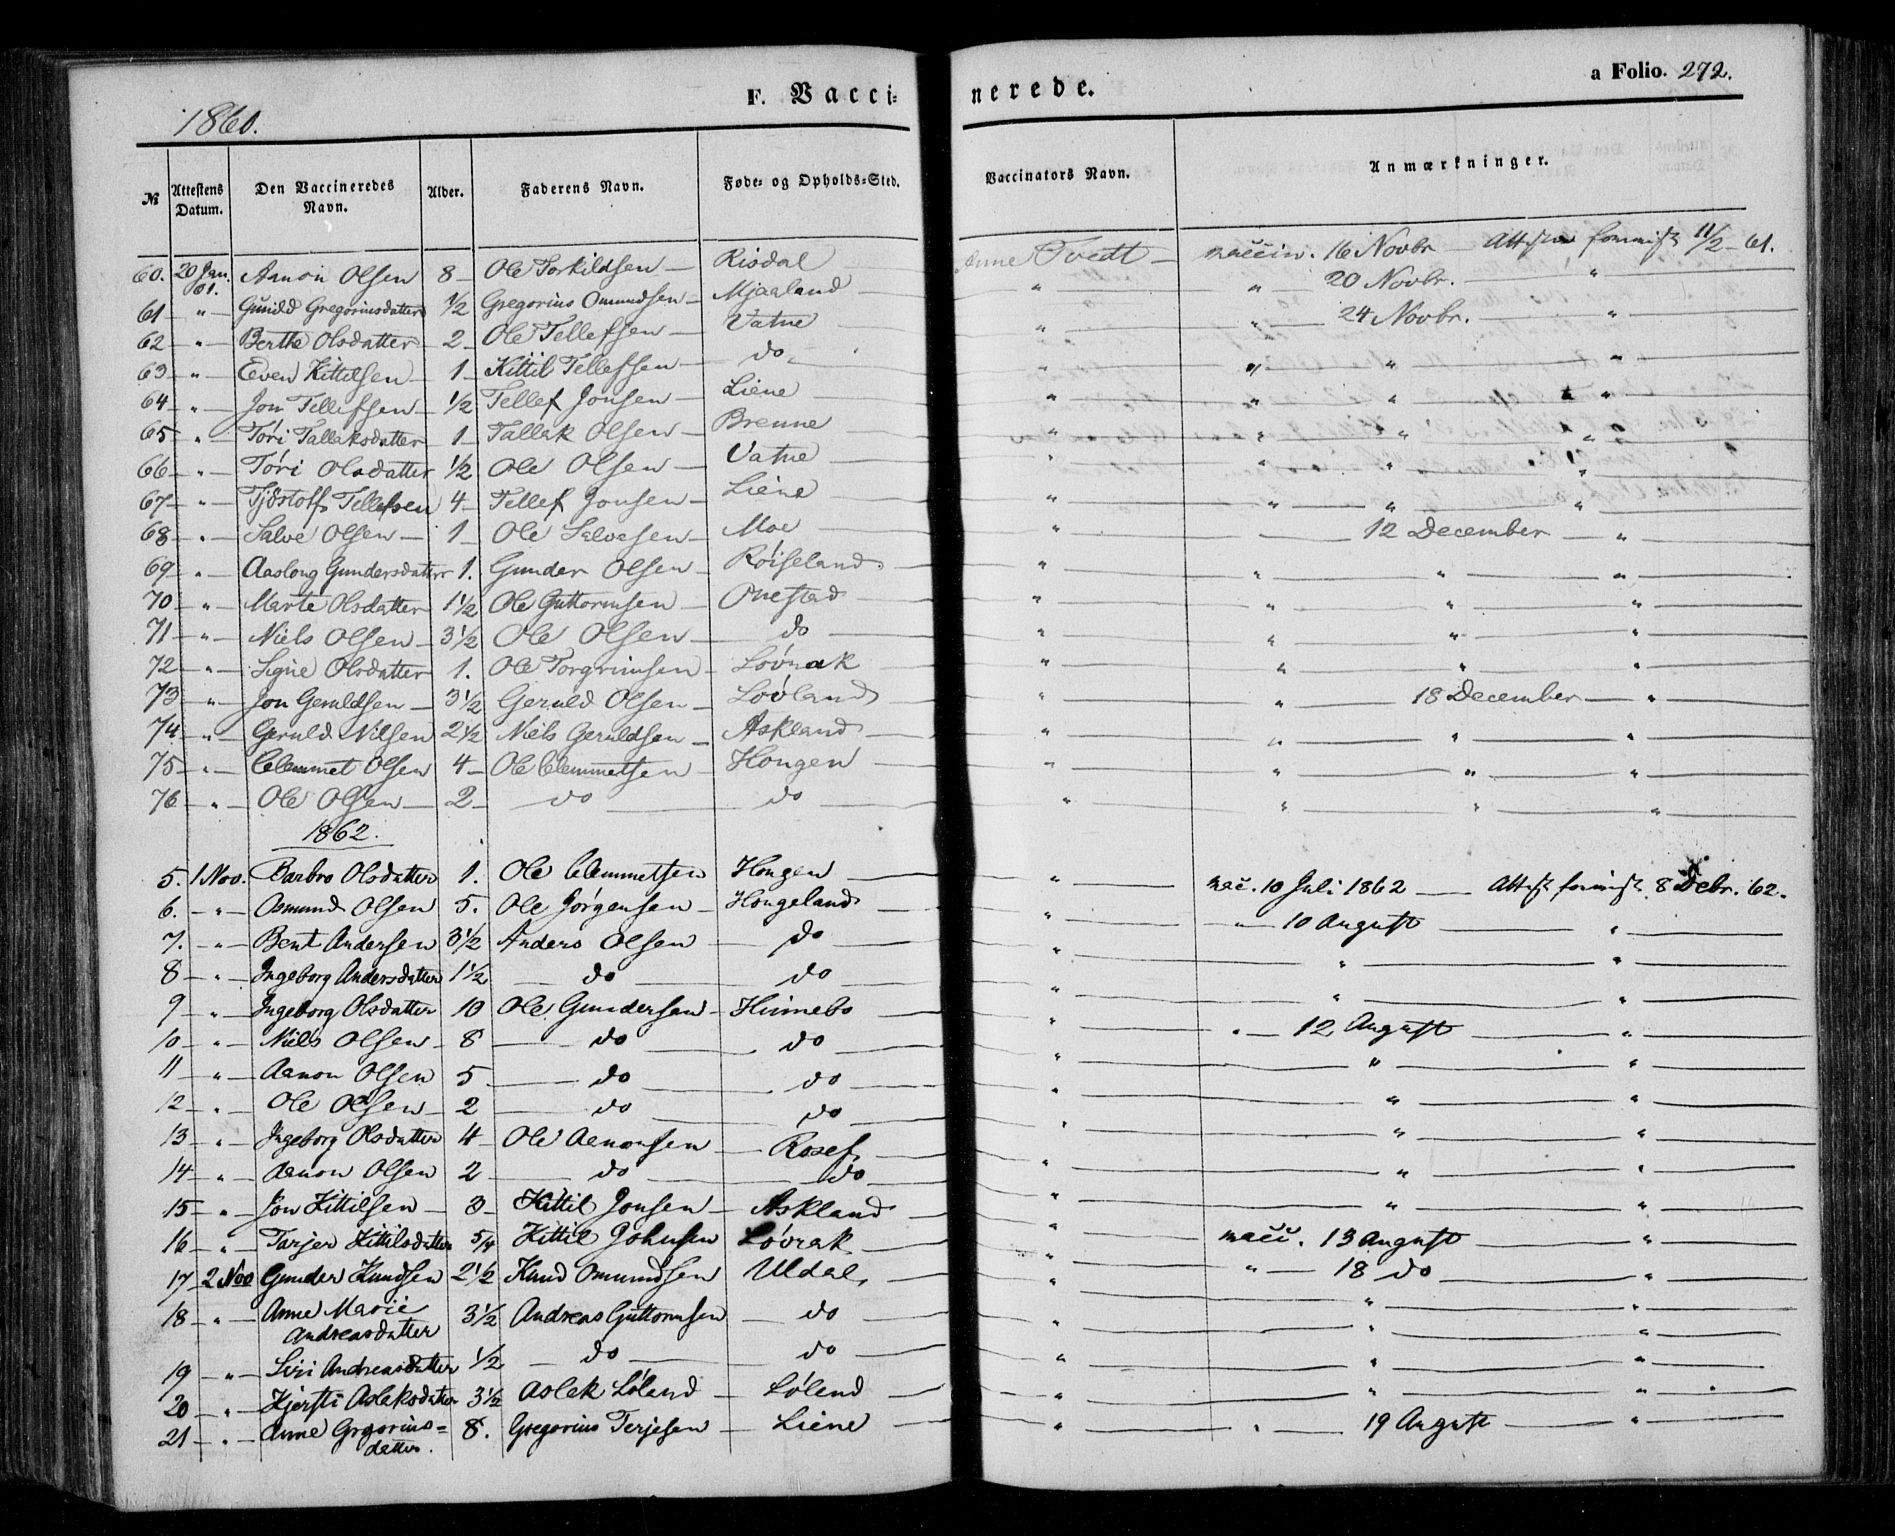 F. Vacci= nerede.
a Folio. 292.
1860.
№ Attestens Datum. Den Vaccineredes Navn. Alder. Faderens Navn. Føde- og Opholds-Sted. Vaccinators Navn. Anmærkninger.
60. 20 Jan. 61. Aanon Olsen 8 Ole Torkildsen Risdal Anne Tvedt vaccin. 16 Novbr 11/2 61.
61 " Gunild Gregoriusdatter 1/2 Gregorius Omundsen Mjaaland " " 20 Novbr. "
62 " Berthe Olsdatter 2 Ole Tellefsen Vatne " " 24 Novbr. "
63 " Even Kittilsen 1 Kittil Tellefsen do " " " "
64 " Jon Tellefsen 1/2 Tellef Jonsen Liene " " " "
65 " Tori Tallaksdatter 1 Tallak Olsen Brenne " " " "
66 " Tori Olsdatter 1/2 Ole Olsen Vatne " " " "
67 " Tjöstolf Tellefsen 4 Tellef Jonsen Liene " " " "
68 " Salve Olsen 1 Ole Salvesen Moe " 12 December "
69 " Aaslong Gundersdatter 1. Gunder Olsen Röiseland " " " "
70 " Marte Olsdatter 1 1/2 Ole Guttormsen Onestad " " " "
71 " Niels Olsen 3 1/2 Ole Olsen do " " " "
72 " Signe Olsdatter 1. Ole Torgrimsen Lövrak " " " "
73 " Jon Geruldsen 3 1/2 Geruld Olsen Lövland " " 18 December "
74 " Geruld Nilsen 2 1/2 Niels Geruldsen Askland " " " "
75 " Clemmet Olsen 4 Ole Clemmetsen Hongen " " " "
76 " Ole Olsen 2 do do " " " "
1862.
5. 1 Nov. Barbro Olsdatter 1. Ole Clemmetsen Hongen " vac. 10 Juli 1862 8 Debr. 62.
6. " Osmund Olsen 5. Ole Jörgensen Hongeland " " 10 August "
7. " Bent Andersen 3 1/2 Anders Olsen do " " "
8 " Ingeborg Andersdatter 1 1/2 do do " " "
9 " Ingeborg Olsdatter 10 Ole Gundersen Hinnebo " " 12 August "
10 " Niels Olsen 8 do do " " "
11 " Aanon Olsen 5 do do " " "
12 " Ole Olsen 2 do do " " "
13 " Ingeborg Olsdatter 4 Ole Aanonsen Rosef " " "
14 " Aanon Olsen 2 do do " " "
15 " Jon Kittilsen 3 Kittil Jonsen Askland " " "
16 " Tarjer Kittilsdatter 5/4 Kittil Johnsen Lövrak " vacc. 13 August "
17 2 Nov Gunder Knudsen 2 1/2 Knud Omundsen Uldal " " 18 do "
18 " Anne Marie Andreasdatter 3 1/2 Andreas Guttormsen do " " "
19 " Siri Andreasdatter 1/2 do do " " "
20 " Kjersti Aslaksdatter 3 1/2 Aslak Löland Löland " " "
21 " Anne Grgorius= datter. 8. Gregorius Terjesen Liene " " 19 August "